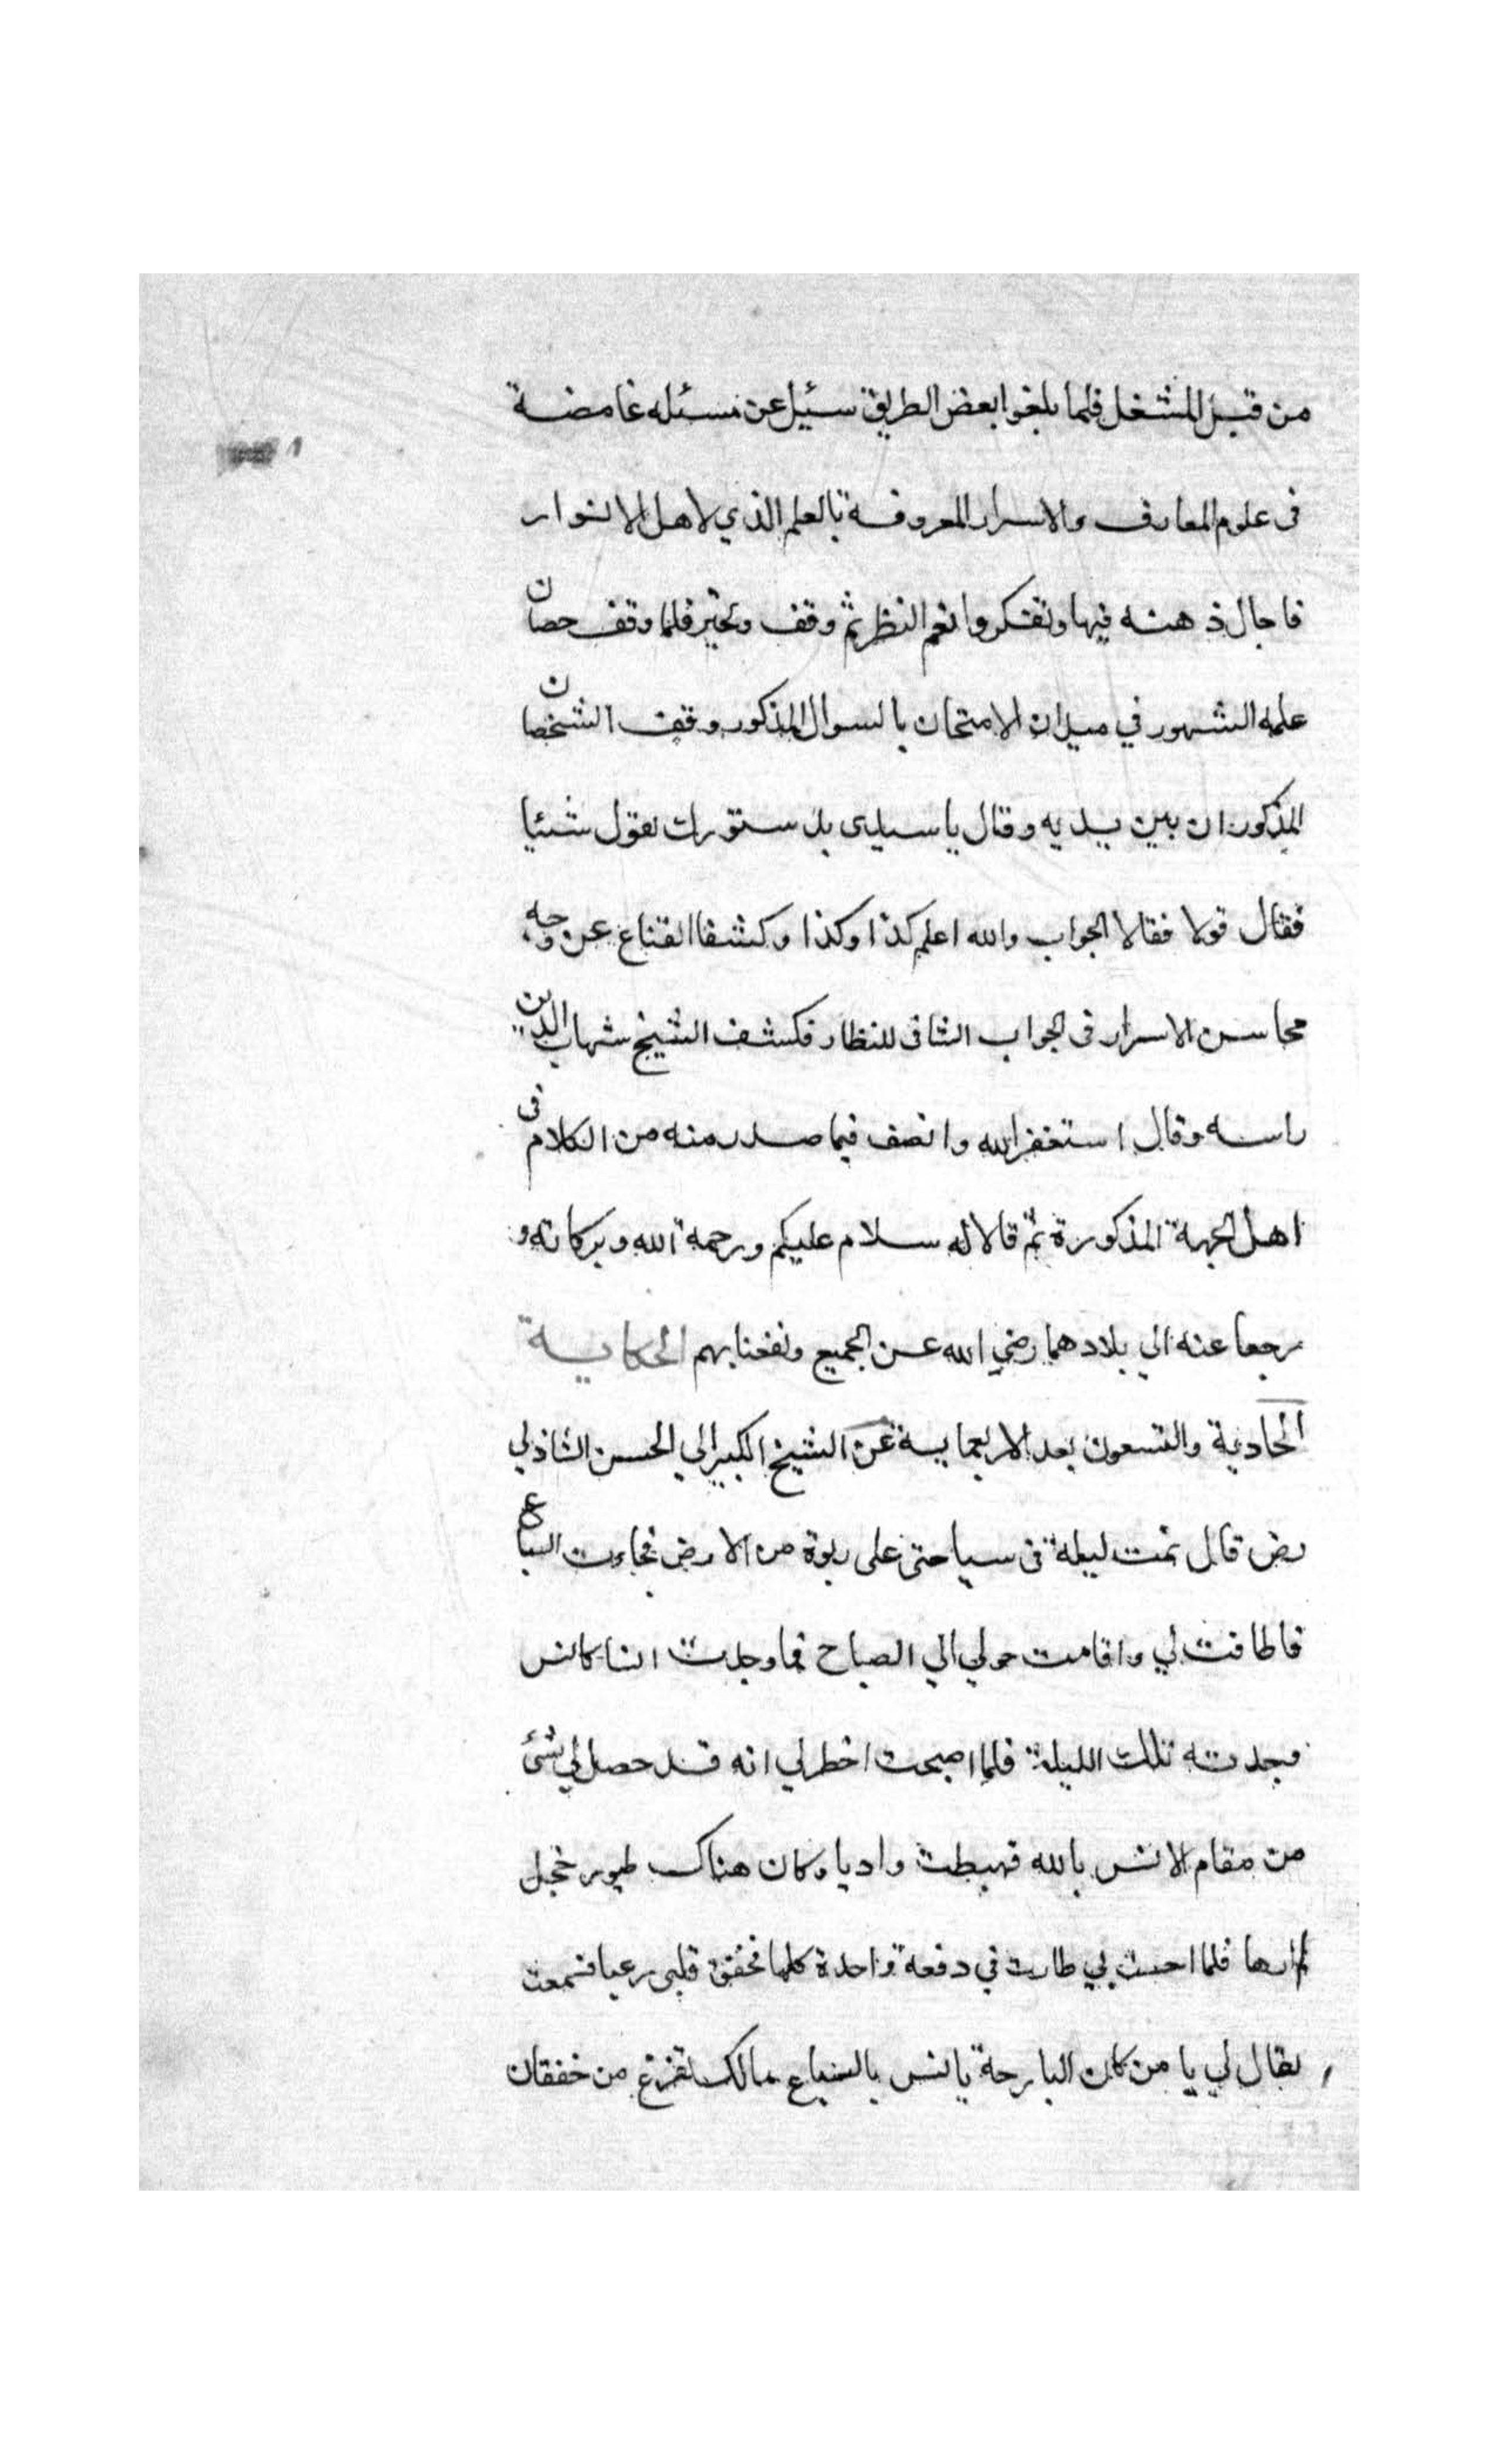 من قبل المشغل فلما بلغوا بعض الطريق سئيل عن مسئله غامضة
فى علوم المعارف والاسرار المعروفة بالعلم الذي لاهل الانوار
فاجال ذهنه فيها وتفكر وانعم النظر ثم وقف وتحير فلما وقف حصان
علمه الشهور في ميدان الامتحان بالسوال المذكور وقف الشخصان
المذكوران بين يديه وقال يا سيدى بدستورك نقول شئيا
فقال قولا فقالا الجواب والله اعلم كذا وكذا وكشفا القناع عن وجه
محاسن الاسرار فى الجواب الشافى للنظار فكشف الشيخ شهاب الدين
راسه وقال استغفر الله وانصف فيما صدر منه من الكلام فى
اهل الجهة المذكورة ثم قالا له سلام عليكم ورحمة الله وبركاته و
رجعا عنه الي بلادهما رضي الله عن الجميع ونفعنا بهم الحكاية
الحادية والتسعون بعد الاربعماية عن الشيخ الكبير ابي الحسن الشاذلي
رض قال نمت ليلة فى سياحتى على ربوة من الارض فجاءت السباع
فاطافت لي واقامت حولي الي الصباح فما وجدت انسا كانس
وجدته تلك الليلة فلما اصبحت اخطر لي انه قد حصل لي شئ
من مقام الانس بالله فهبطت واديا وكان هناك طيور حجل
لم ارها فلما احست بي طارت في دفعة واحدة كلها فخفق قلبى رعبا فسمعت
يقال لي يا من كان البارحة يانس بالسباع مالك تفزع من خفقان